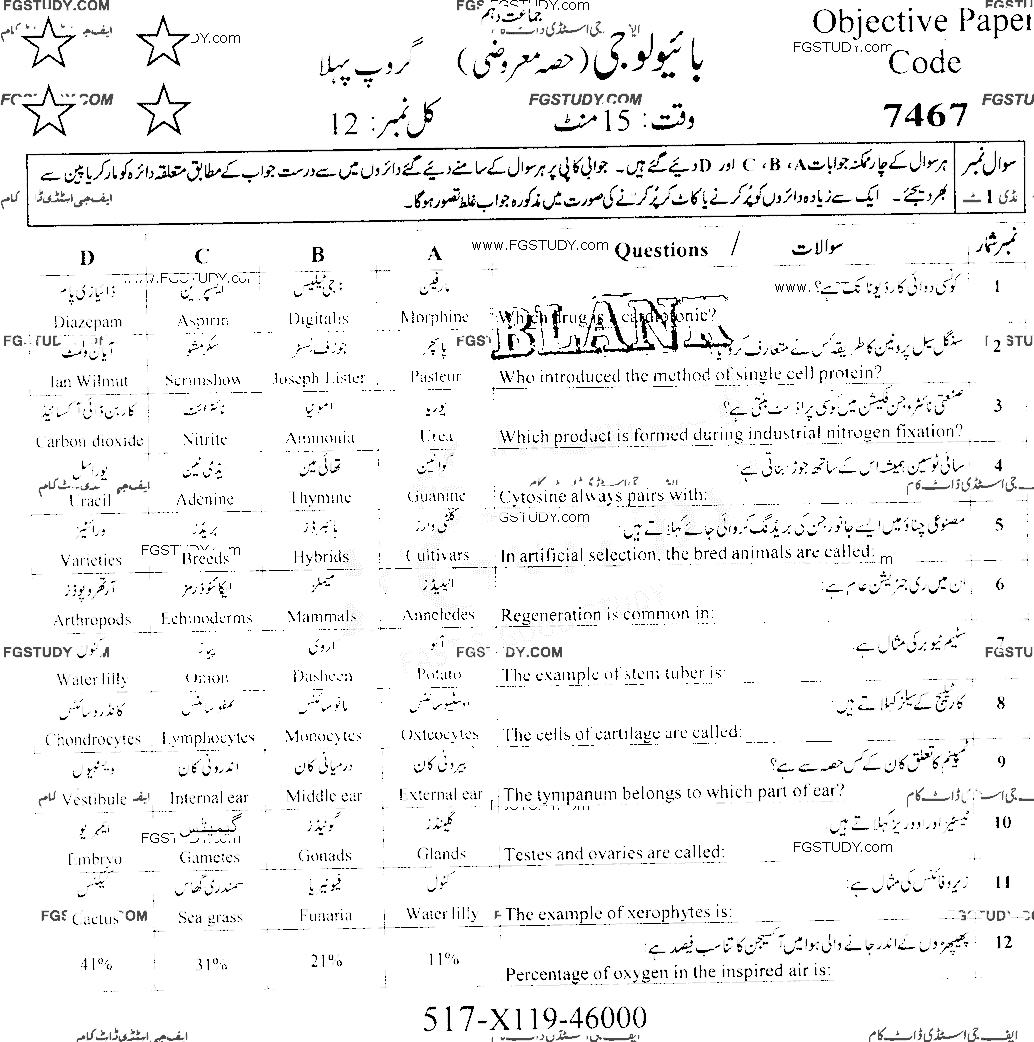 FGSTUDY.COM
جماعت دہم
Objective Paper
Code
7467
بائیولوجی (حصہ معروضی) گروپ پہلا
وقت: 15 منٹ کل نمبر: 12
سوال نمبر 1 ہر سوال کے چار ممکنہ جوابات A، B، C اور D دیئے گئے ہیں۔ جوابی کاپی پر ہر سوال کے سامنے دیئے گئے دائروں میں سے درست جواب کے مطابق متعلقہ دائرہ کو مارکر یا پین سے
بھر دیجئے۔ ایک سے زیادہ دائروں کو پُر کرنے یا کاٹ کر پُر کرنے کی صورت میں مذکورہ جواب غلط تصور ہوگا۔
D C B A Questions / سوالات نمبر شمار
www.FGSTUDY.com
BLANK
ڈائیازی پام ایسپرین ڈیجی ٹیلس مارفین کونسی دوائی کارڈیوٹانک ہے؟ 1
Diazepam Aspirin Digitalis Morphine Which drug is a cardiotonic?
آیان ولمٹ سکرمشو جوزف لسٹر پاسچر سنگل سیل پروٹین کا طریقہ کس نے متعارف کروایا؟ 2
Ian Wilmut Scrimshow Joseph Lister Pasteur Who introduced the method of single cell protein?
کاربن ڈائی آکسائیڈ نائٹرائٹ امونیا یوریا صنعتی نائٹروجن فکسیشن میں کونسی پراڈکٹ بنتی ہے؟ 3
Carbon dioxide Nitrite Ammonia Urea Which product is formed during industrial nitrogen fixation?
یوراسل ایڈی نین تھائی مین گوانین سائی ٹوسین ہمیشہ اس کے ساتھ جوڑ بناتی ہے: 4
Uracil Adenine Thymine Guanine Cytosine always pairs with:
ورائٹیز بریڈز ہائبرڈز کلٹی وارز مصنوعی چناؤ میں ایسے جانور جن کی بریڈنگ کروائی جائے کہلاتے ہیں: 5
Varieties Breeds Hybrids Cultivars In artificial selection, the bred animals are called:
آرتھروپوڈز ایکائنوڈرمز میملز اینیلیڈز ان میں ری جنریشن عام ہے: 6
Arthropods Echinoderms Mammals Anneledes Regeneration is common in:
کنول پیاز اروی آلو سٹیم ٹیوبر کی مثال ہے: 7
Water lilly Onion Dasheen Potato The example of stem tuber is:
کانڈروسائٹس لمفوسائٹس مونوسائٹس اوسٹیوسائٹس کارٹیلیج کے سیلز کہلاتے ہیں: 8
Chondrocytes Lymphocytes Monocytes Oxteocytes The cells of cartilage are called:
ویسٹیبیول اندرونی کان درمیانی کان بیرونی کان ٹمپینم کا تعلق کان کے کس حصہ سے ہے؟ 9
Vestibule Internal ear Middle ear External ear The tympanum belongs to which part of ear?
ایمبریو گیمیٹس گونیڈز گلینڈز ٹیسٹیز اور اووریز کہلاتے ہیں 10
Embryo Gametes Gonads Glands Testes and ovaries are called:
کیکٹس سمندری گھاس فیونیریا کنول زیروفائٹس کی مثال ہے: 11
Cactus Sea grass Funaria Water lilly The example of xerophytes is:
پھیپھڑوں کے اندر جانے والی ہوا میں آکسیجن کا تناسب فیصد ہے: 12
41% 31% 21% 11% Percentage of oxygen in the inspired air is:
517-X119-46000
ایف جی اسٹڈی ڈاٹ کام